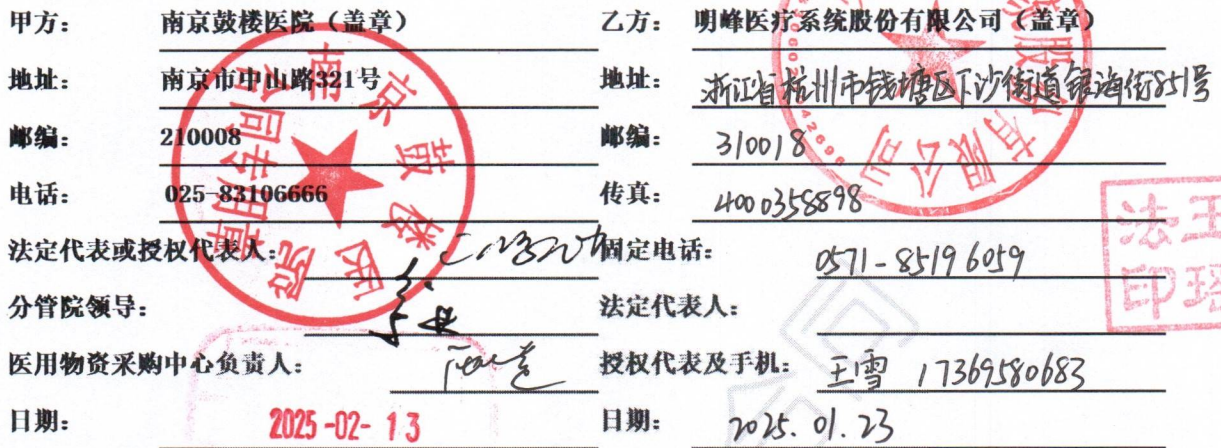 甲方： 南京鼓楼医院（盖章）
地址： 南京市中山路321号
邮编： 210008
电话： 025-83106666
法定代表或授权代表人：
分管院领导：
医用物资采购中心负责人：
日期： 2025-02-13
南京鼓楼医院
合同专用章
乙方： 明峰医疗系统股份有限公司（盖章）
地址： 浙江省杭州市钱塘区下沙街道银海街851号
邮编： 310018
传真： 4000358898
固定电话： 0571-85196059
法定代表人：
授权代表及手机： 王雪 17369580683
日期： 2025.01.23
股份有限公司
王瑶
法印
合同